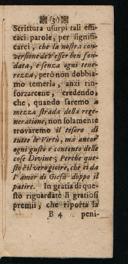 (30)
Scrittura usurpi tali effi-
caci parole, per signifi-
carci, che la nostra con-
versione dev' esser ben fon-
data, e senza una tene-
rezza, però non dobbia-
mo temerla, anzi rin-
forzarcene, credendo
che, quando saremo a
mezza strada della rege-
neratione, non solamente
trovaremo il tesoro di
tutte le Virtù, ma ancor
ogni gusto e contento delle
cose Divine; Perche que-
sto è il vero giorre, che si dà
l' amor di Giesù dippo il
patire. In gratia di que-
sto riguardate li gratiosi
premii, che riporta la
B 4 peni-